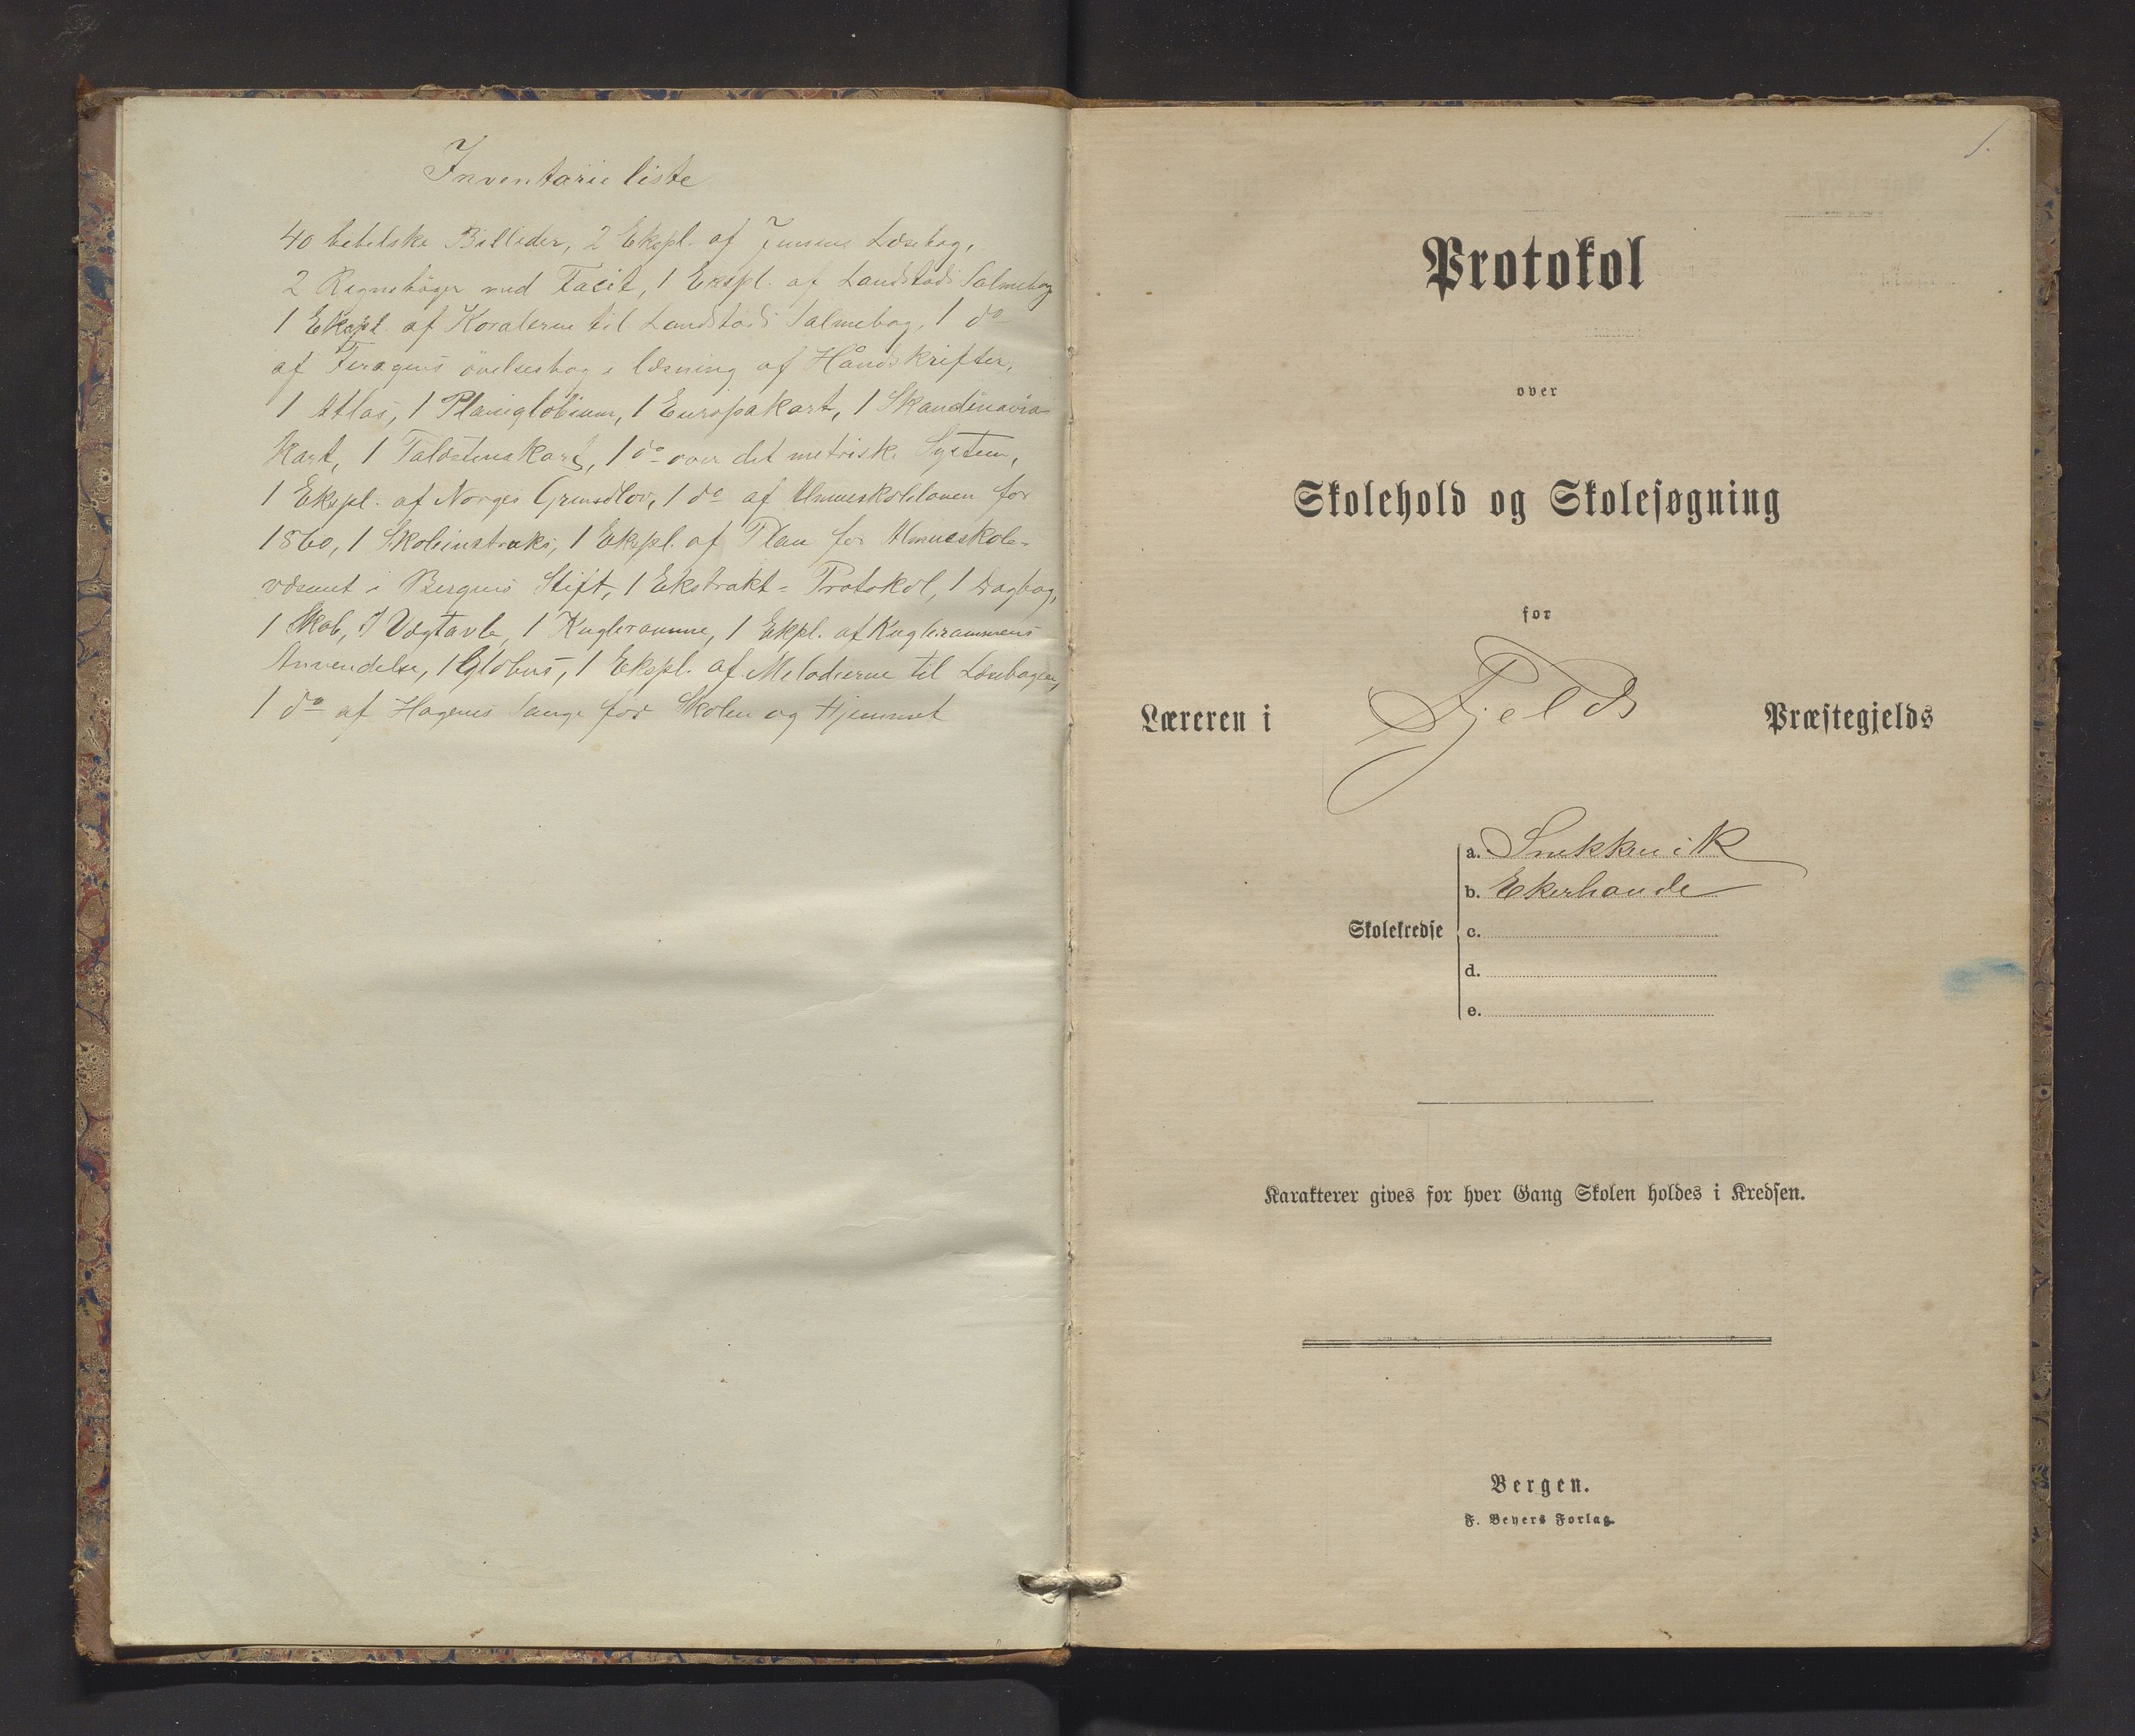 Inventarieliste
40 bibelske Billeder, 2 Ekspl. af Jensens Læsebog,
2 Regnebøger med Facit, 1 Ekspl. af Landstads Salmebog
1 Ekspl. af Koralerne til Landstads Salmebog, 1 do
af øvelsesbog i læsning af Håndskrifter,
1 Atlas, 1 Planiglobium, 1 Europakart, 1 Skandinavia
Kart, 1 Palæstinakart, 1 do over det metriske System,
1 Ekspl. af Norges Grundlov, 1 do af Almueskoleloven for
1860, 1 Skoleinstruks, 1 Ekspl. af Plan for Almueskole-
væsenet i Bergens Stift, 1 Ekstrakt-Protokol, 1 Dagbog,
1 Skab, 1 Vægtavle, 1 Kugleramme, 1 Ekpl. af Kuglerammens
Anvendelse, 1 Globus, 1 Ekspl. af Melodierne til Læsebogen,
1 do af Hagens Sange for Skolen og Hjemmet
1.
Protokol
over
Skolehold og Skolesøgning
for
Læreren i Fjelds Præstegjelds
Skolekredse
a. Snekkevik
b. Ekerhovde
c.
d.
e.
Karakterer gives for hver Gang Skolen holdes i Kredsen.
Bergen.
F. Beyers Forlag.